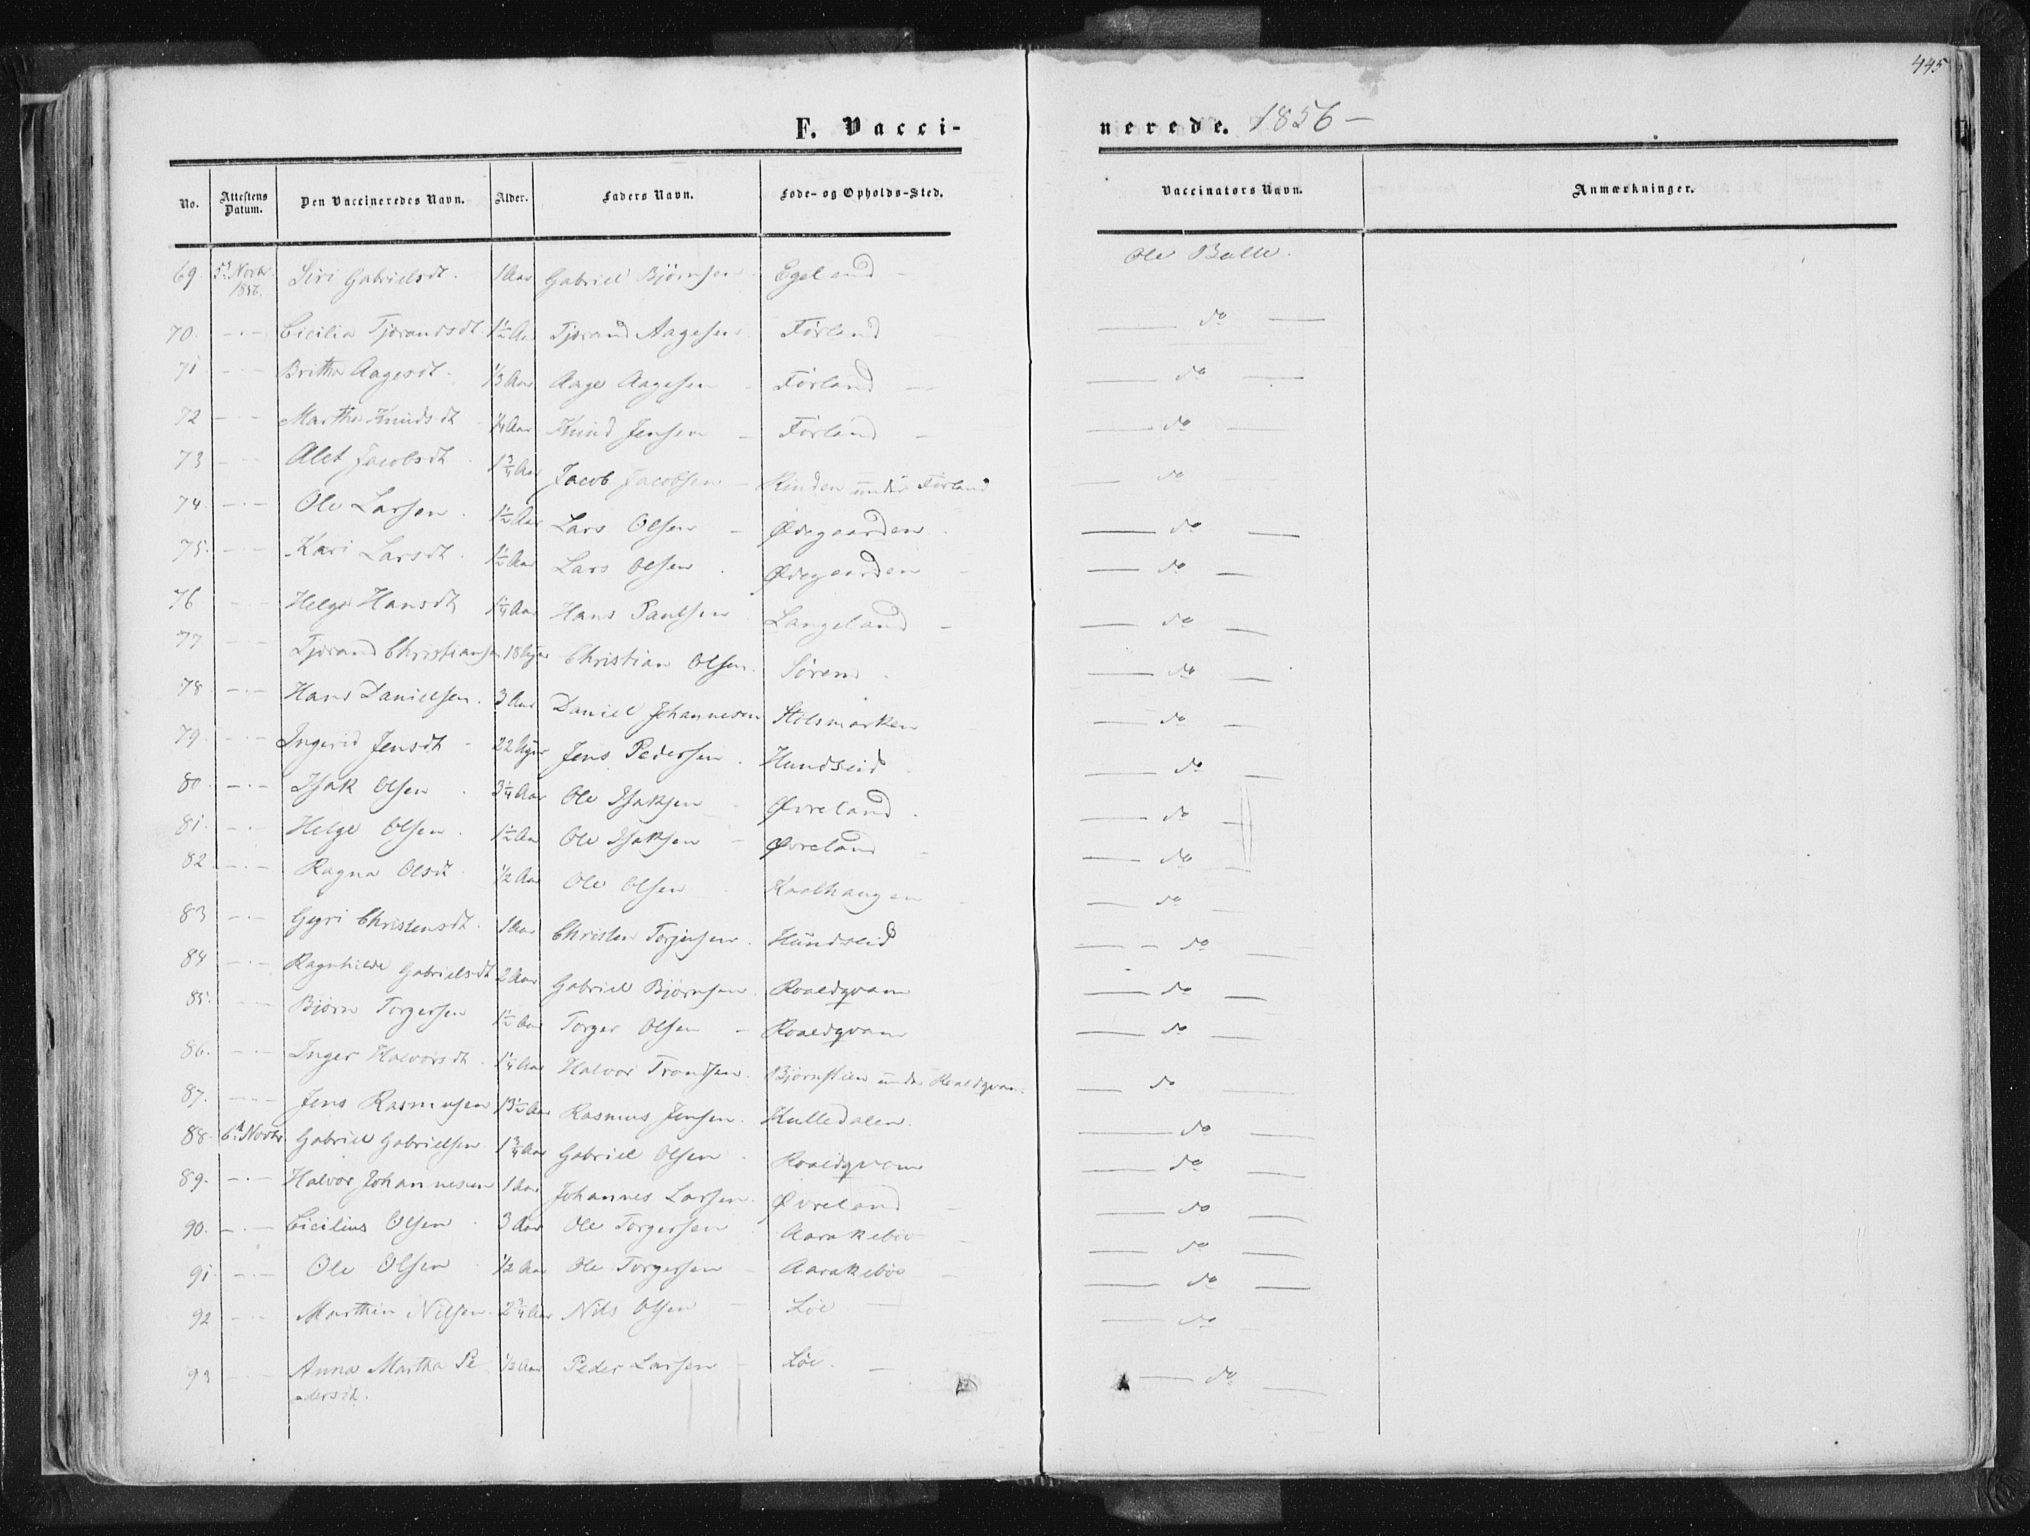 445
F. Vacci-
nerede. 1856 —
No. Attestens Datum. Den Vaccineredes Navn. Alder. Faders Navn. Føde- og Opholds-Sted. Vaccinators Navn. Anmærkninger.
69. 5te Novbr 1856. Siri Gabrielsdt. 1 Aar Gabriel Bjørnsen Egeland — Ole Balle.
70. —·— Cicilia Tjorandsdt. 1½ Aar Tjorand Aagesen Førland — do —
71 —·— Britha Aagesdt. ⅓ Aar Aage Aagesen — Førland — — do —
72 —·— Martha Knudsdt ¼ Aar Knud Jensen — Førland — — do —
73 —·— Alet Jacobsdt 1¾ Aar Jacob Jacobsen — Rinden under Førland — do —
74 —·— Ole Larsen. 1½ Aar Lars Olsen — Ødegaarden. — do —
75. —·— Kari Larsdt. 1½ Aar Lars Olsen. Ødegaarden — — do —
76 —·— Helge Hansdt 1¼ Aar Hans Paulsen Langeland — — do —
77 —·— Tjorand Christiansen 18 Uger Christian Olsen. — do —
78. —·— Hans Danielsen. 3 Aar Daniel Johannesen Stølsmarken — do —
79. —·— Ingerid Jensdt — 22 Uger Jens Pedersen. Hundseid. — do —
80. —·— Isak Olsen. 3¼ Aar Ole Isaksen — Øvreland. — do —
81. —·— Helge Olsen. 1½ Aar Ole Isaksen — Øvreland — — do —
82 —·— Ragna Olsdt. ½ Aar Ole Olsen. Kaalhaugen — do —
83 —·— Gyri Christensdt. 1 Aar Christen Torjusen. Hundseid — — do
84 —·— Ragnhilde Gabrielsdt 2 Aar Gabriel Bjørnsen. Roaldqvam — do —
85. —·— Bjørn Torgersen 1½ Aar Torger Olsen — Roaldqvam — do —
86. —·— Inger Halvorsdt. 1¼ Aar Halvor Trondsen. Bjørnstien under Roaldqvam. — do —
87. —·— Jens Rasmusen Rasmus Jensen. Hulledalen. — do —
88. 6te Novbr. Gabriel Gabrielsen 1¾ Aar Gabriel Olsen. Roaldqvam — do —
89. —·— Halvor Johannesen 1 Aar Johannes Larsen. Øvreland — — do —
90. —·— Cicilius Olsen. 3 Aar Ole Torgersen Aarakebøe — — do —
91. —·— Ole Olsen ½ Aar Ole Torgersen — Aarakebøe — — do —
92 —·— Marthin Nilsen. 2¾ Aar Nils Olsen — Løe — — do —
93 —·— Anna Martha Pe- ½ Aar Peder Larsen — Løe. — — do —
dersdt.